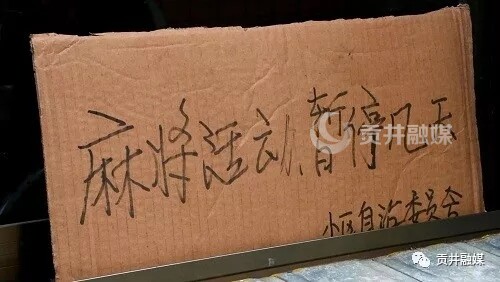 麻将活动,暂停几天
小区自治委员会
贡井融媒
贡井融媒